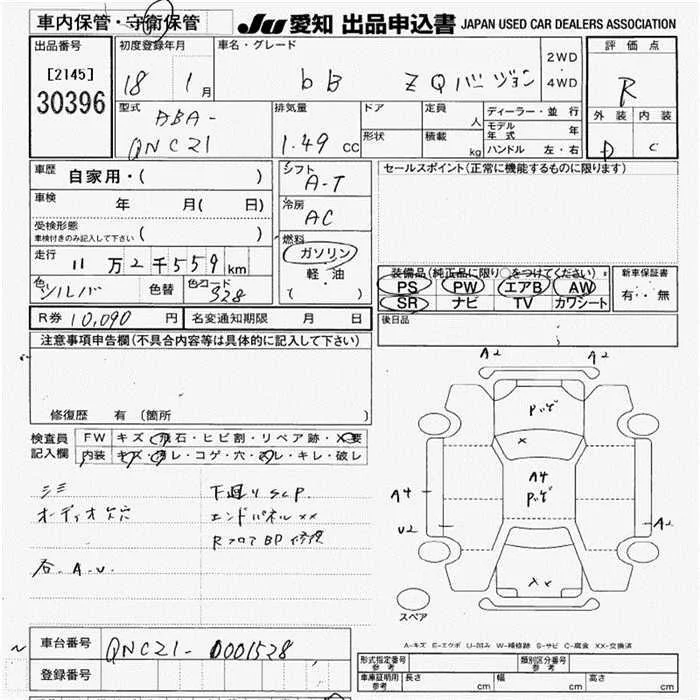 車内保管・守衛保管
JU 愛知 出品申込書 JAPAN USED CAR DEALERS ASSOCIATION
出品番号
[2145]
30396
初度登録年月
18 1月
車名・グレード
bB ZQバージョン
2WD
4WD
評価点
R
外装 内装
D C
型式
ABA-
QNC21
排気量
1.49 cc
ドア
形状
定員 人
積載 kg
ディーラー・並行
モデル年式 年
ハンドル 左・右
車歴 自家用・( )
車検 年 月( 日)
受検形態
車検付きのみ記入して下さい ( )
走行 11万2千559km
色 シルバ 色替 色コード S28
R券 10,090円 名変通知期限 月 日
シフト
A-T
冷房
AC
燃料
ガソリン
軽・油
( )
セールスポイント(正常に機能するものに限ります)
装備品(純正品に限り○をつけてください)
PS PW エアB AW
SR ナビ TV カワシート
新車保証書
有・無
後日品
注意事項申告欄(不具合内容等は具体的に記入して下さい)
修復歴 有 (箇所 )
検査員記入欄
FW キズ・飛石・ヒビ割・リペア跡・×要
内装 キズ・汚レ・コゲ・穴・スレ・キレ・破レ
シミ
オーディオ欠穴
下廻りS.C.P.
エンドパネル××
RフロアBP修復
各.A.U.
A2 A2
A4
A4
U2
A2
スペア
A-キズ E-エクボ U-凹み W-補修跡 S-サビ C-腐食 XX-交換済
車台番号 QNC21-0001528
登録番号
形式指定番号 参考
類別区分番号 参考
車庫証明用 参考 長さ cm 幅 cm 高さ cm